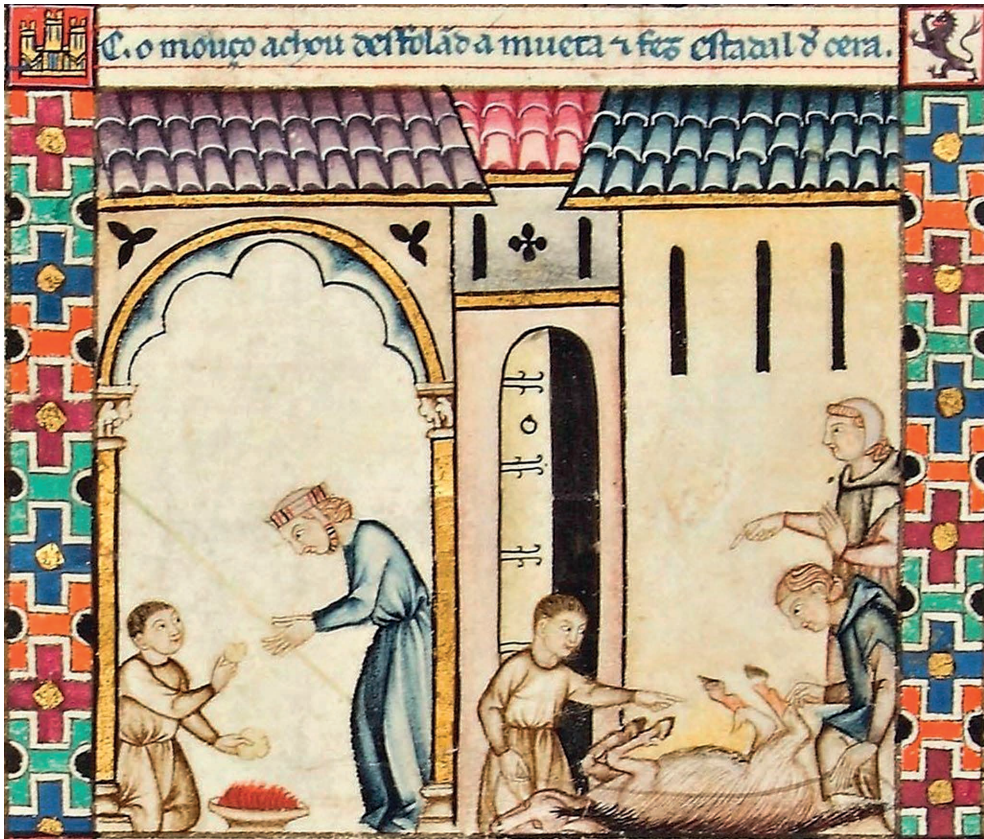 C. o mouço achou desfolãd a mueta ⁊ fez estadal d' cera.